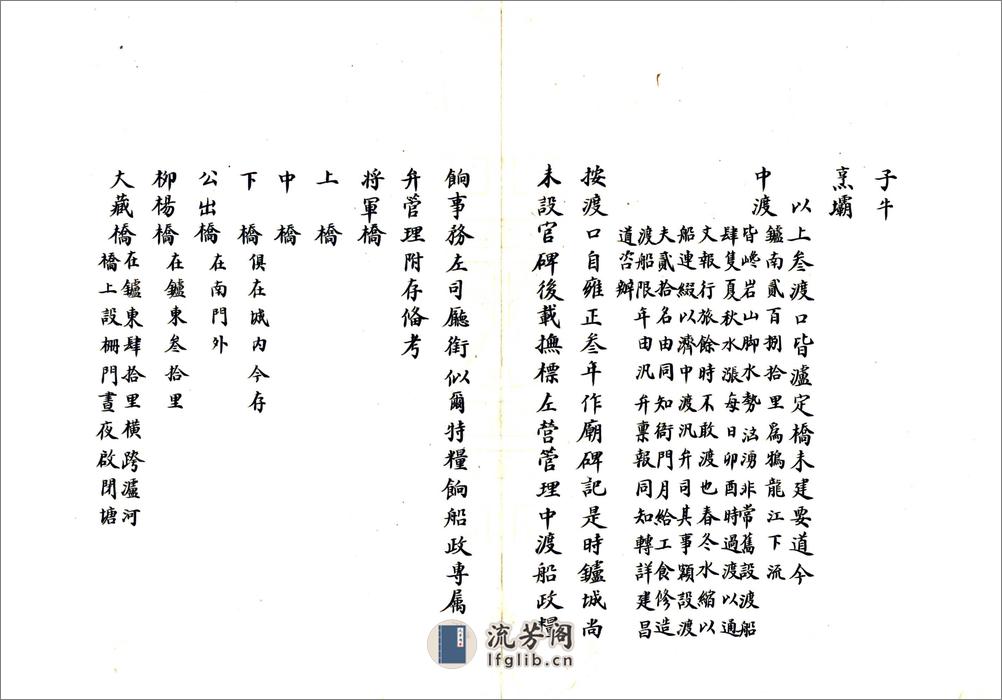 子牛
烹壩
以上叁渡口皆瀘定橋未建要道今
中渡
鑪南貳百捌拾里爲鴉龍江下流
皆巉岩山脚水勢洶湧非常舊設渡船
肆隻夏秋水漲每日卯酉時過渡以通
文報行旅餘時不敢渡也春冬水縮以
船連綴以濟中渡汎弁司其事額設渡
夫貳拾名由同知衙門月給工食修造
渡船限年由汎弁稟報同知轉詳建昌
道咨辦
按渡口自雍正叁年作廟碑記是時鑪城尚
未設官碑後載撫標左營管理中渡船政糧
餉事務左司廳銜似爾特糧餉船政專属
弁管理附存俻考
将軍橋
上橋
中橋
下橋 俱在城内今存
公出橋 在南門外
柳楊橋 在鑪東叁拾里
大藏橋 在鑪東肆拾里橫跨瀘河
橋上設柵門晝夜啟閉塘
流芳阁
lfglib.cn